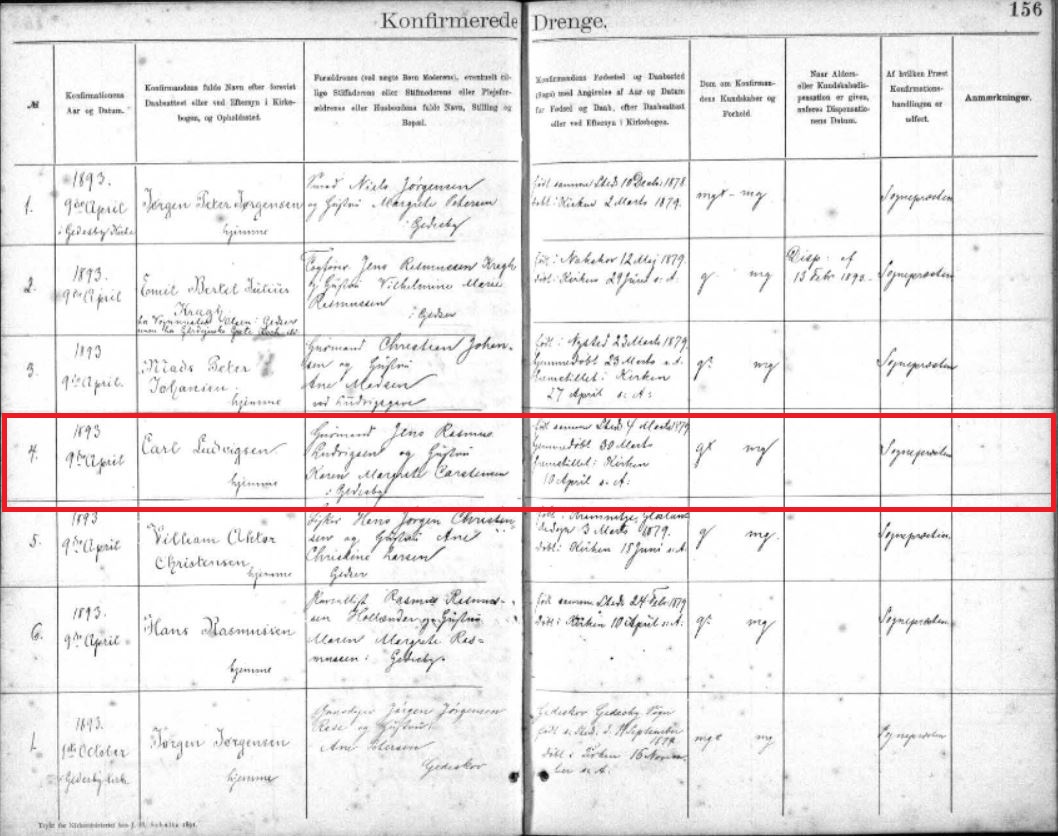 156
Konfirmerede Drenge.
№
Konfirmationens
Aar og Datum.
Konfirmandens fulde Navn efter forevist
Daabsattest eller ved Eftersyn i Kirke-
bogen, og Opholdssted.
Forældrenes (ved uægte Børn Moderens), eventuelt til-
lige Stiffaderens eller Stifmoderens eller Plejefor-
ældrenes eller Husbondens fulde Navn, Stilling og
Bopæl.
Konfirmandens Fødested og Daabssted
(Sogn) med Angivelse af Aar og Datum
for Fødsel og Daab, efter Daabsattest
eller ved Eftersyn i Kirkebogen.
Dom om Konfirman-
dens Kundskaber og
Forhold.
Naar Alders-
eller Kundskabsdis-
pensation er given,
anføres Dispensatio-
nens Datum.
Af hvilken Præst
Konfirmations-
handlingen er
udført.
Anmærkninger.
1.
1893.
9de April
i Gedesby Kirke
Jørgen Peter Jørgensen
hjemme
Smed Niels Jørgensen
og Hustru Margrete Petersen
i Gedesby
født samme Sted 10 Decbr 1878
døbt i Kirken 2 Marts 1879.
mg× - mg
Sognepræsten
2.
1893.
9de April
Emil Bertel Julius
Kragh
Jens Rasmussen Kragh
og Hustru Vilhelmine Marie
Rasmussen
i Gedser
født i Nakskov 12 Maj 1879
døbt i Kirken 29 Juni s. A.
g mg
Disp. af
13 Febr 1893.
Sognepræsten
3.
1893
9de April.
Mads Peter
Johansen.
hjemme
Huusmand Christian Johan-
sen og Hustru
Ane Madsen
født i Nysted 23 Marts 1879
hjemmedøbt 23 Marts s. A.
fremstillet i Kirken
27 April s. A.
g× mg
Sognepræsten
4.
1893
9de April
Carl Ludvigsen
hjemme
Huusmand Jens Rasmus
Ludvigsen og Hustru
Karen Margrete Carstensen
i Gedesby
født samme Sted 4 Marts 1879
hjemmedøbt 30 Marts
fremstillet i Kirken
10 April s. A.
g× mg
Sognepræsten
5.
1893
9de April
William Victor
Christensen
hjemme
Fisker Hans Jørgen Christen-
sen og Hustru Ane
Christine Larsen
Gedser
3 Marts 1879.
døbt i Kirken 15 Juni s. A.
g mg.
Sognepræsten
6.
1893.
9de April
Hans Rasmussen
hjemme
Rasmus Rasmus-
sen Hollænder og Hustru
Maren Margrete Ras-
mussen i Gedesby.
født samme Sted 24 Febr 1879
døbt i Kirken 10 April s. A.
g× mg
Sognepræsten
1.
1893.
1ste October
i Gedesby Kirke
Jørgen Jørgensen
hjemme
Jørgen Jørgensen
og Hustru
Ane Petersen
Gedeskov
Gedeskov Gedesby Sogn
September
1879
døbt i Kirken 16 Novem-
ber s. A.
mg× mg
Sognepræsten
Trykt for Kirkeministeriet hos J. H. Schultz 1891.